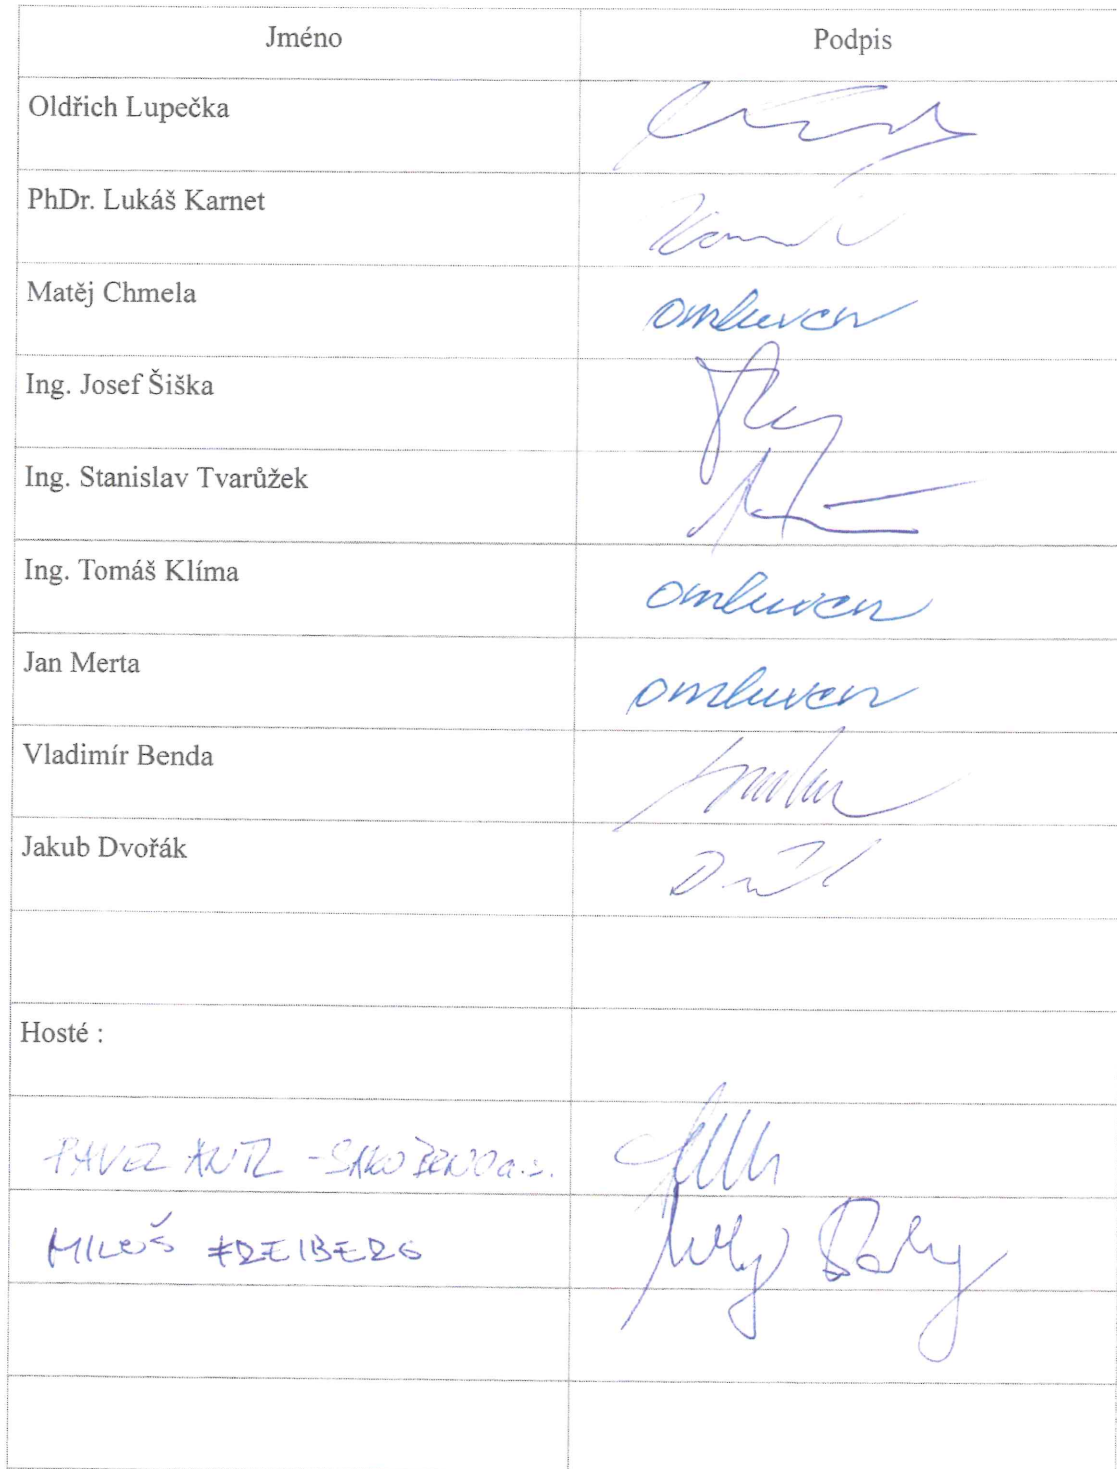 Jméno Podpis
Oldřich Lupečka
PhDr. Lukáš Karnet
Matěj Chmela omluven
Ing. Josef Šiška
Ing. Stanislav Tvarůžek
Ing. Tomáš Klíma omluven
Jan Merta omluven
Vladimír Benda
Jakub Dvořák
Hosté :
PAVEL ANTL - SAKO BRNO a.s.
MILOŠ FREIBERG